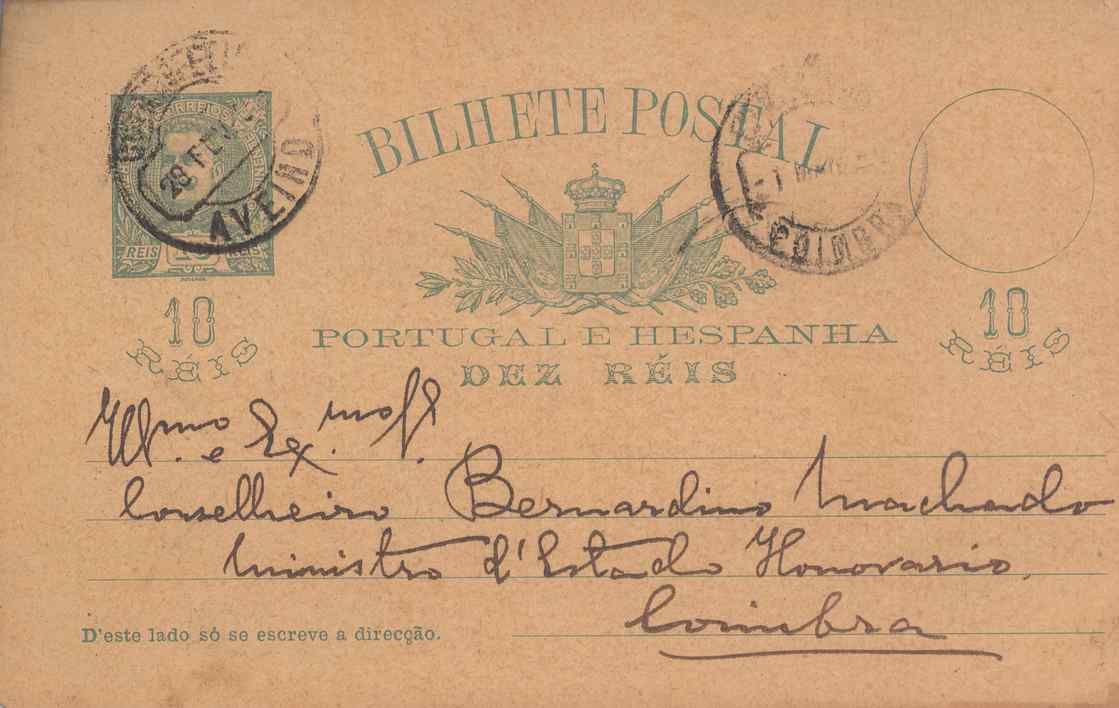 CORREIOS
28 FE
AVEIRO
REIS 10 REIS
BILHETE POSTAL
1 MAR
COIMBRA
10 RÉIS
10 RÉIS
PORTUGAL E HESPANHA
DEZ RÉIS
Ill.mo e Ex.mo Sr.
Conselheiro Bernardino Machado
Ministro d'Estado Honorario
Coimbra
D'este lado só se escreve a direcção.